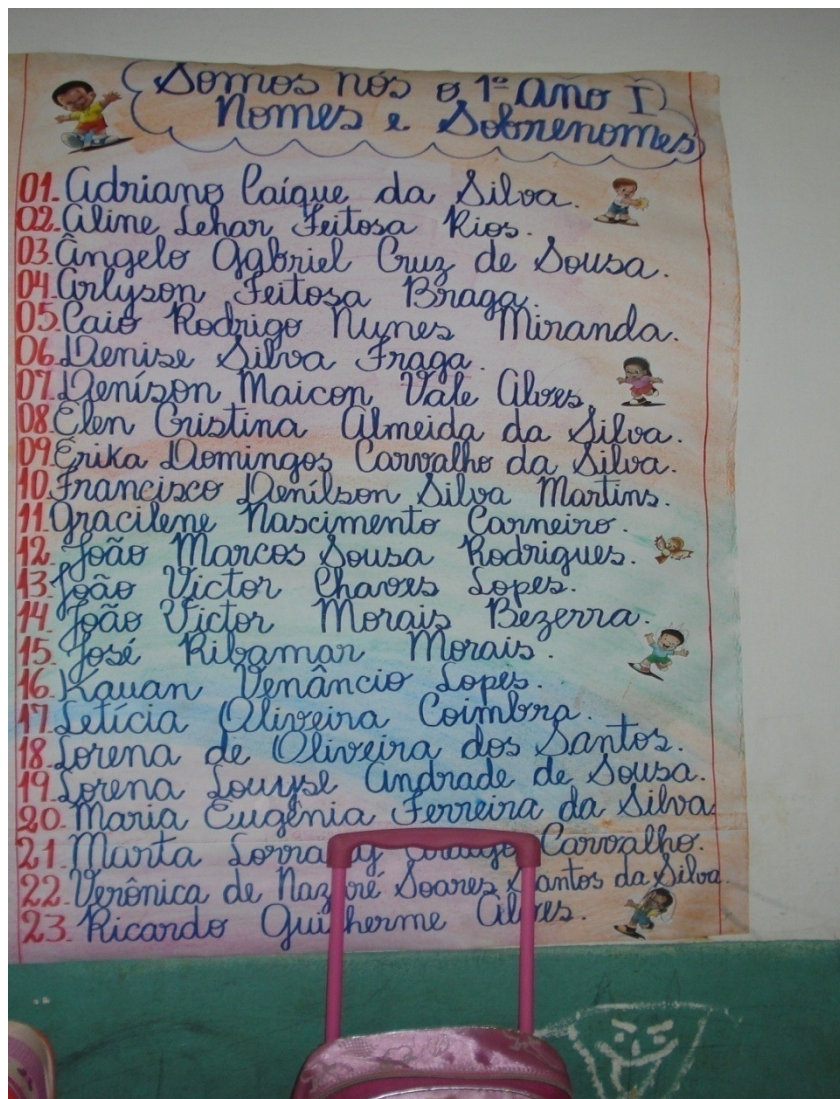 Somos nós o 1º ano I
Nomes e Sobrenomes
01. Adriano Caíque da Silva.
02. Aline Lehar Feitosa Rios.
03. Ângelo Gabriel Cruz de Sousa.
04. Arlyson Feitosa Braga.
05. Caio Rodrigo Nunes Miranda.
06. Denise Silva Fraga.
07. Deníson Maicon Vale Alves
08. Élen Cristina Almeida da Silva.
09. Érika Domingos Carvalho da Silva.
10. Francisco Denílson Silva Martins.
11. Gracilene Nascimento Carneiro.
12. João Marcos Sousa Rodrigues.
13. João Victor Chaves Lopes.
14. João Victor Morais Bezerra.
15. José Ribamar Morais.
16. Kauan Venâncio Lopes.
17. Letícia Oliveira Coimbra.
18. Lorena de Oliveira dos Santos.
19. Lorena Louyse Andrade de Sousa.
20. Maria Eugênia Ferreira da Silva.
21. Marita Carvalho.
22. Verônica de Nazaré Soares Santos da Silva.
23. Ricardo Guilherme Alves.